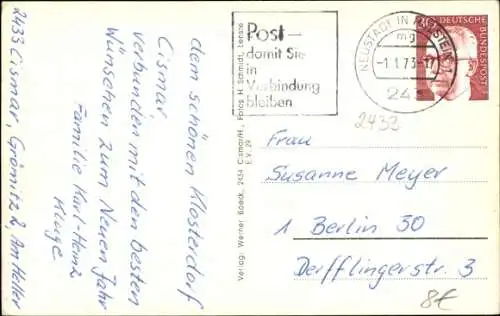 2433 Cismar, Grömitz 2, Am Heller
dem schönen Klosterdorf
Cismar
verbunden mit den besten
Wünschen zum Neuen Jahr
Familie Karl-Heinz
Kluge.
Verlag: Werner Boeck, 2434 Cismar/H., Fotos H. Schmidt, Lensahn
E.V. 29
Post –
damit Sie
in
Verbindung
bleiben
NEUSTADT IN HOLSTEIN 1
mg
-1.1.73-17
243
30
DEUTSCHE
BUNDESPOST
2432
Frau
Susanne Meyer
1 Berlin 30
Derfflingerstr. 3
8€